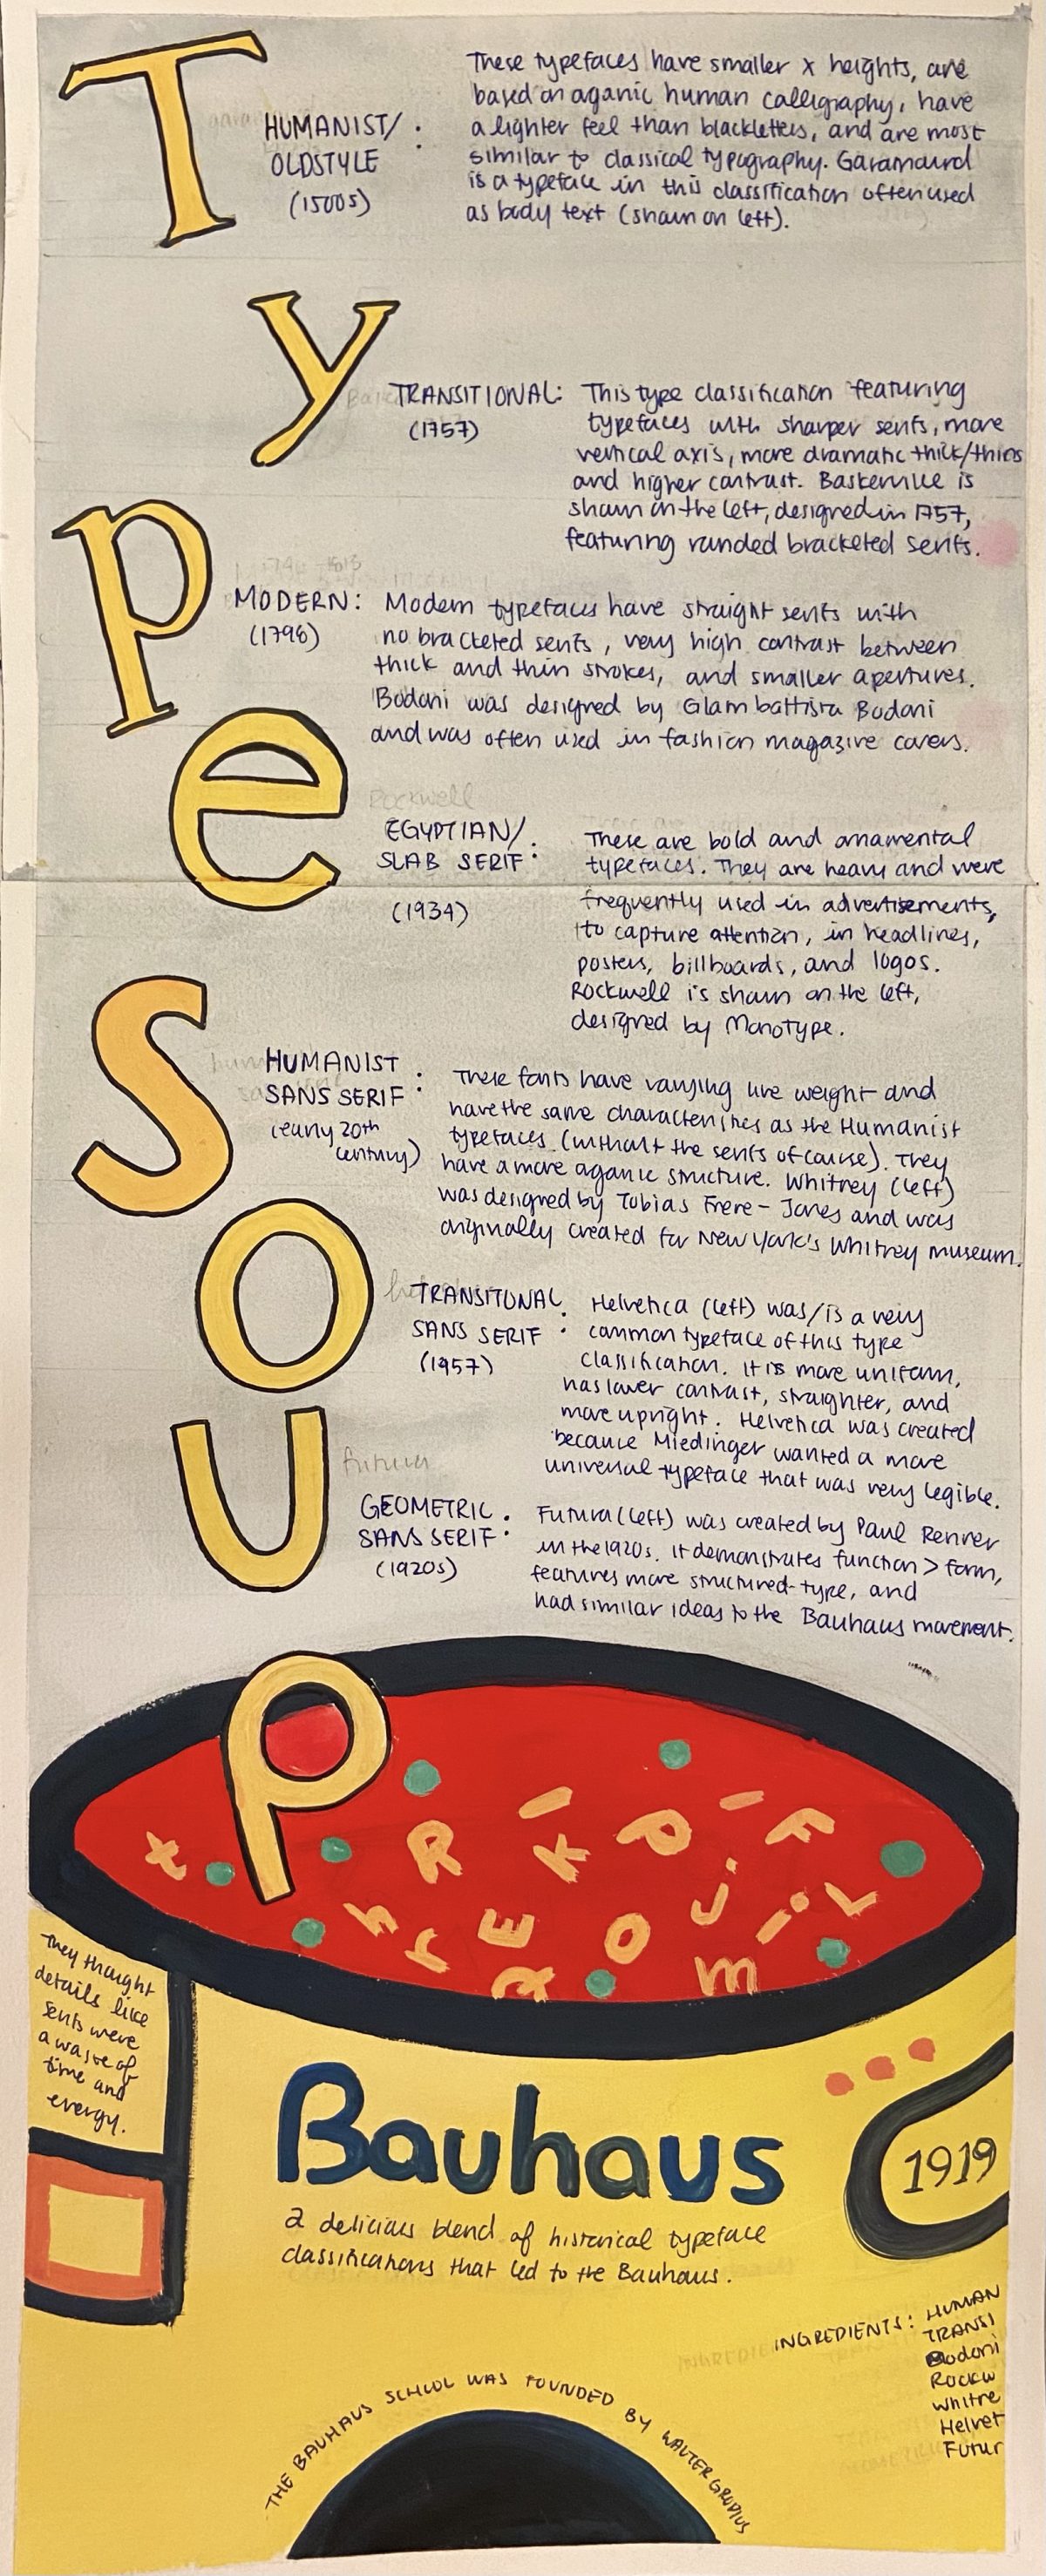 T
HUMANIST/ :
OLDSTYLE
(1500s)
These typefaces have smaller x heights, are
based on oganic human calligraphy, have
a lighter feel than blackletters, and are most
similar to classical typography. Garamound
is a typeface in this classification often used
as body text (shown on left).
y
TRANSITIONAL:
(1757)
This type classification featuring
typefaces with sharper serifs, more
vertical axis, more dramatic thick/thins
and higher contrast. Baskerville is
shown on the left, designed in 1757,
featuring rounded bracketed serifs.
p
MODERN:
(1798)
Modern typefaces have straight serifs with
no bracketed serifs, very high contrast between
thick and thin strokes, and smaller apertures.
Bodoni was designed by Giambattista Bodoni
and was often used in fashion magazine covers.
e
Rockwell
EGYPTIAN/ :
SLAB SERIF
(1934)
These are bold and ornamental
typefaces. They are heavy and were
frequently used in advertisements,
to capture attention, in headlines,
posters, billboards, and logos.
Rockwell is shown on the left,
designed by Monotype.
S
HUMANIST :
SANS SERIF
(early 20th
century)
These fonts have varying line weight and
have the same characteristics as the Humanist
typefaces (without the serifs of course). They
have a more oganic structure. Whitney (left)
was designed by Tobias Frere-Jones and was
originally created for New York's Whitney museum.
O
TRANSITONAL :
SANS SERIF
(1957)
Helvetica (left) was/is a very
common typeface of this type
classification. It is more uniform,
has lower contrast, straighter, and
more upright. Helvetica was created
because Miedinger wanted a more
universal typeface that was very legible.
U
futura
GEOMETRIC :
SANS SERIF
(1920s)
Futura (left) was created by Paul Renner
in the 1920s. It demonstrates function > form,
features more structured-type, and
had similar ideas to the Bauhaus movement.
P
t R k P F
h r E O j i L
R m
They thought
details like
serifs were
a waste of
time and
energy.
Bauhaus
1919
a delicious blend of historical typeface
classifications that led to the Bauhaus.
INGREDIENTS: HUMAN
TRANSI
Bodoni
Rockw
Whitne
Helvet
Futur
THE BAUHAUS SCHOOL WAS FOUNDED BY WALTER GROPIUS